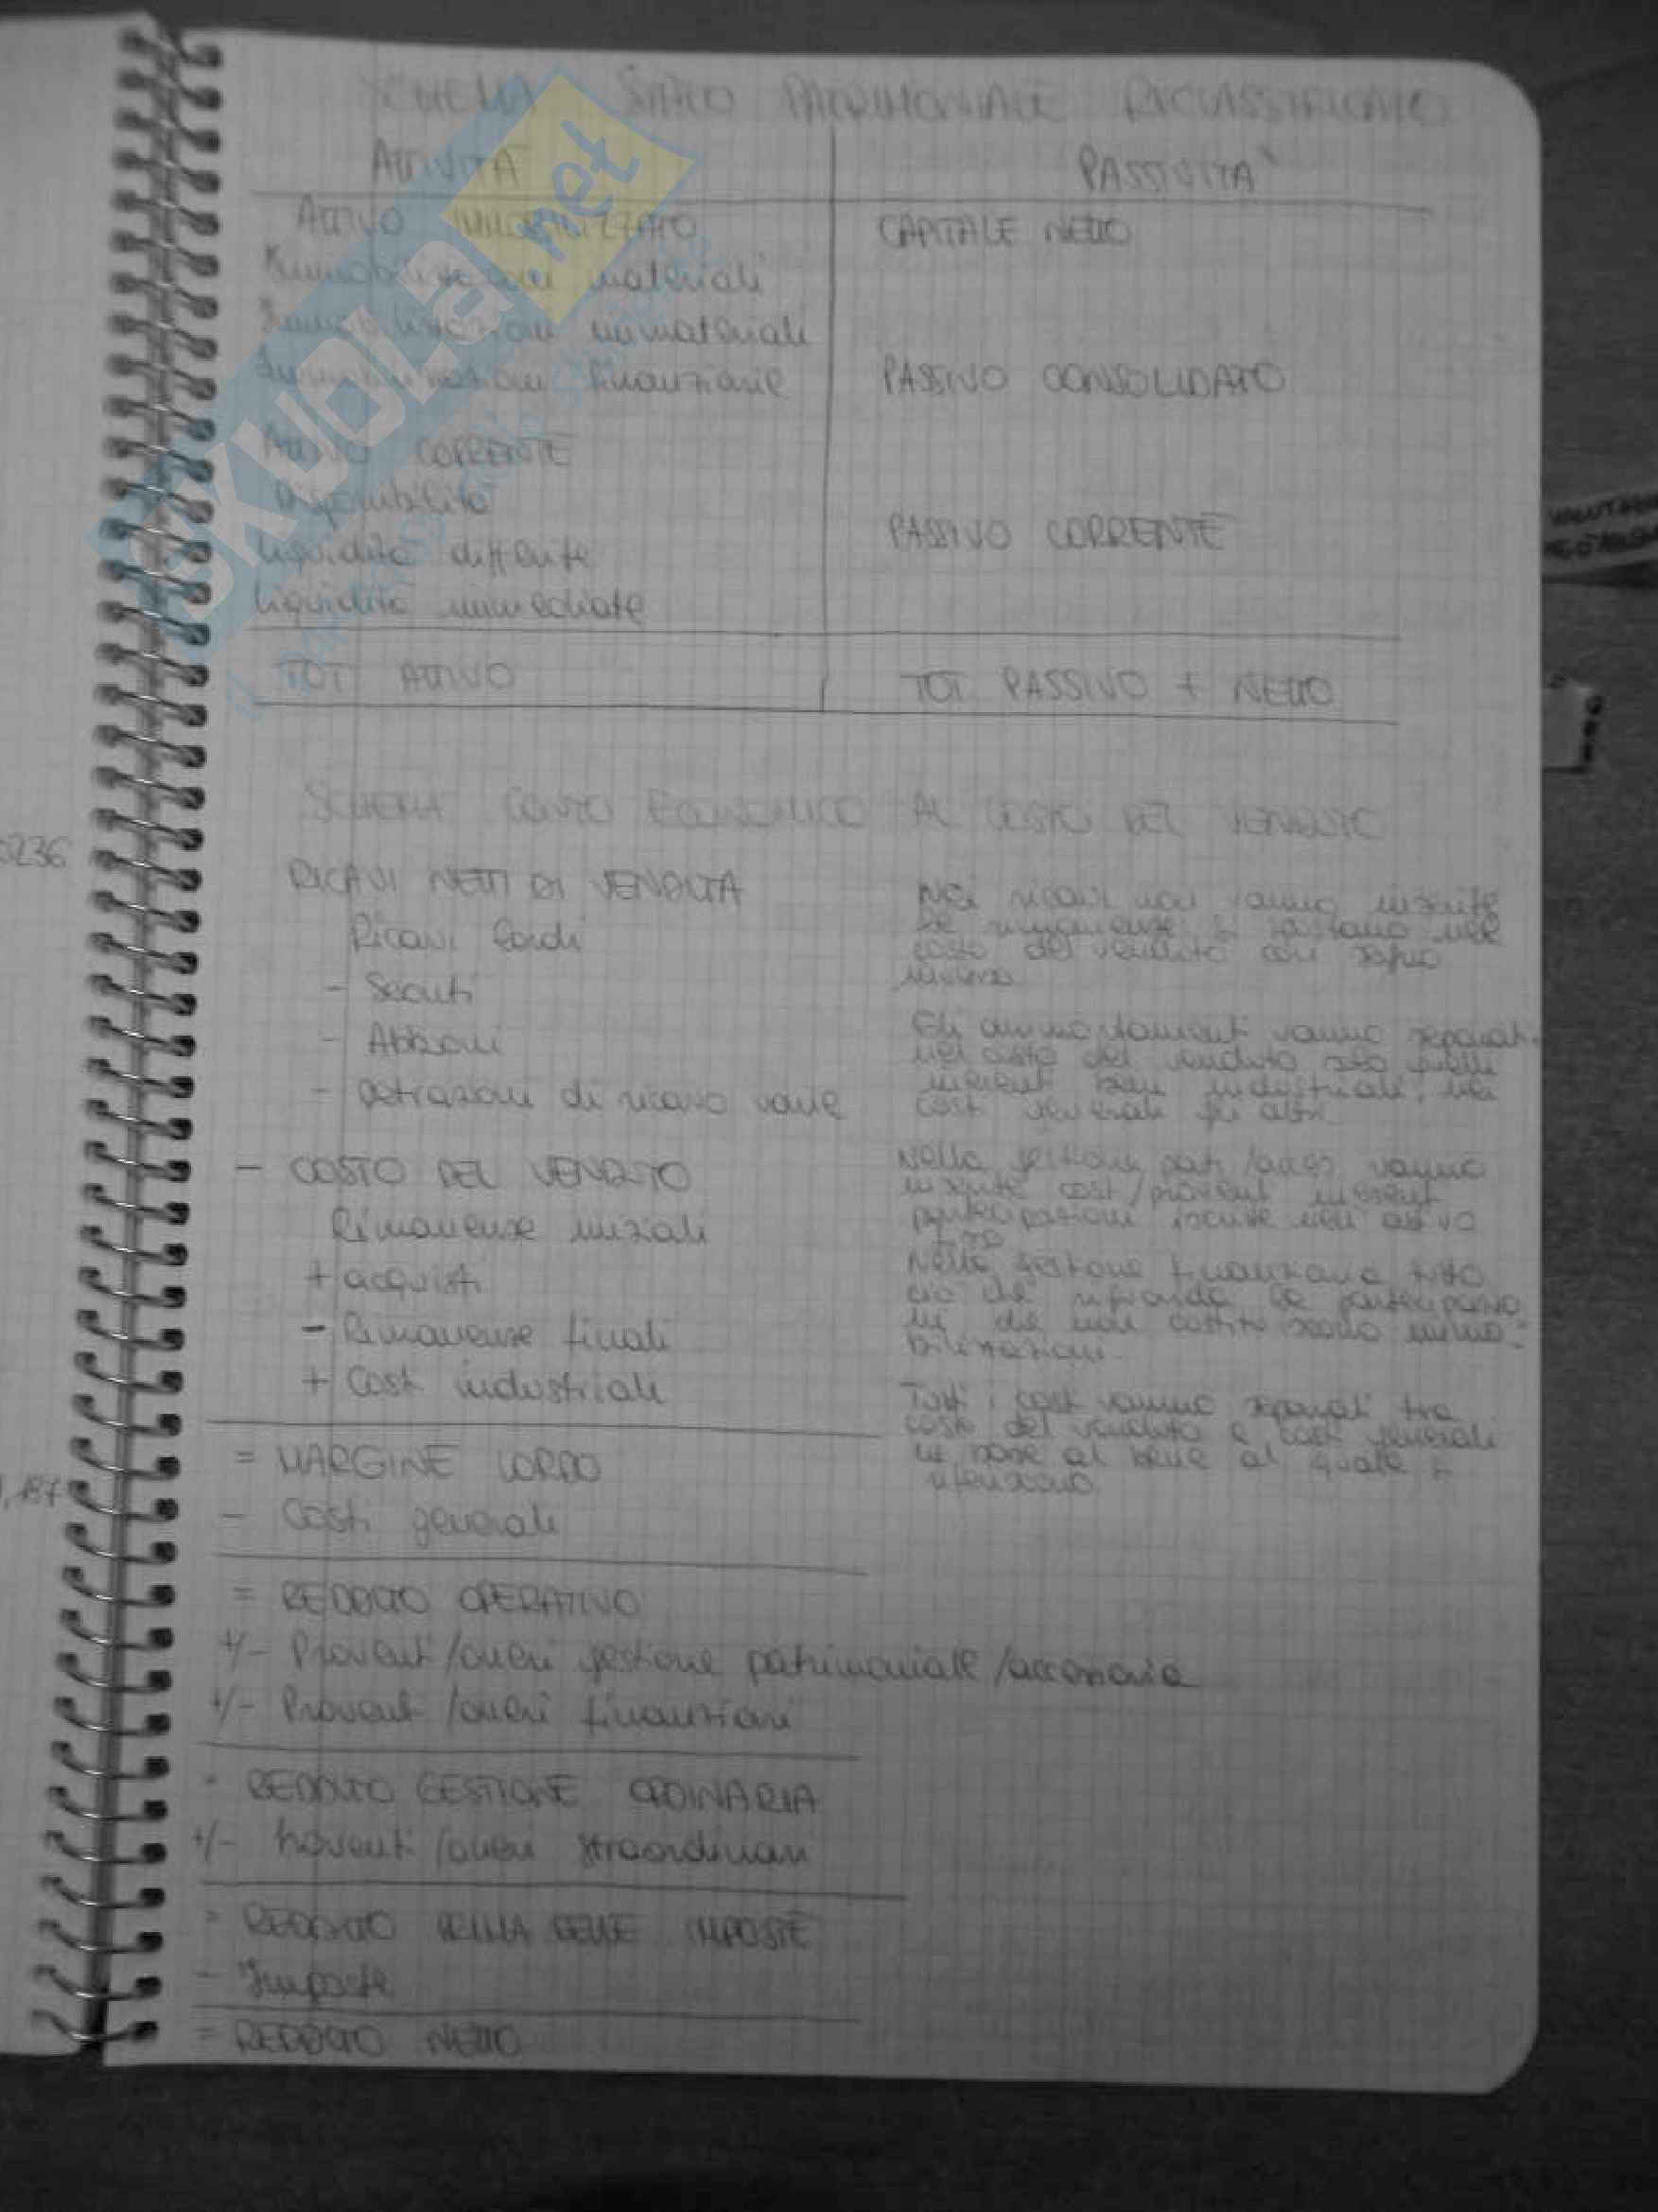 SCHEMA STATO PATRIMONIALE RICLASSIFICATO
ATTIVITÀ
PASSIVITÀ
ATTIVO IMMOBILIZZATO
CAPITALE NETTO
Immobilizzazioni materiali
Immobilizzazioni immateriali
Immobilizzazioni finanziarie
PASSIVO CONSOLIDATO
ATTIVO CORRENTE
Disponibilità
PASSIVO CORRENTE
Liquidità differite
Liquidità immediate
TOT ATTIVO
TOT. PASSIVO + NETTO
SKUOLA.net
SCHEMA CONTO ECONOMICO AL COSTO DEL VENDUTO
RICAVI NETTI DI VENDITA
Ricavi lordi
- Sconti
- Abbuoni
- detrazioni di ricavo varie
- COSTO DEL VENDUTO
Rimanenze iniziali
+ acquisti
- Rimanenze finali
+ Costi industriali
= MARGINE LORDO
- Costi generali
= REDDITO OPERATIVO
+/- Proventi/oneri gestione patrimoniale/accessoria
+/- Proventi/oneri finanziari
= REDDITO GESTIONE ORDINARIA
+/- Proventi/oneri straordinari
= REDDITO PRIMA DELLE IMPOSTE
- Imposte
= REDDITO NETTO
Nei ricavi non vanno inserite
le rimanenze, si spostano nel
costo del venduto con segno
inverso
Gli ammortamenti vanno separati:
nel costo del venduto solo quelli
inerenti beni industriali, nei
costi generali gli altri.
Nella gestione patr/acces. vanno
inserite costi/proventi inerenti
partecipazioni iscritte nell'attivo
fisso
Nella gestione finanziaria tutto
ciò che riguarda le partecipazio
ni che non costituiscono immo-
bilizzazioni.
Tutti i costi vanno separati tra
costo del venduto e costi generali
in base al bene al quale si
riferiscono.
0236
,187